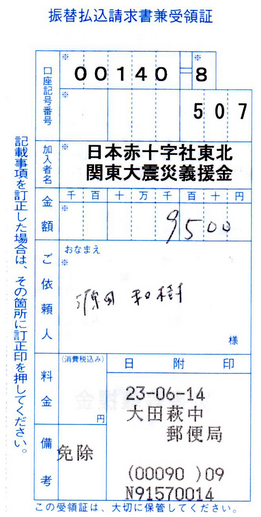 振替払込請求書兼受領証
口座記号番号
※
00140-8
507
加入者名
日本赤十字社東北
関東大震災義援金
金額
※
千百十万千百十円
9500
ご依頼人
おなまえ
※
源田和樹
様
料金
(消費税込み)
円
日附印
23-06-14
大田萩中
郵便局
(00090 )09
N91570014
備考
免除
記載事項を訂正した場合は、その箇所に訂正印を押してください。
この受領証は、大切に保管してください。